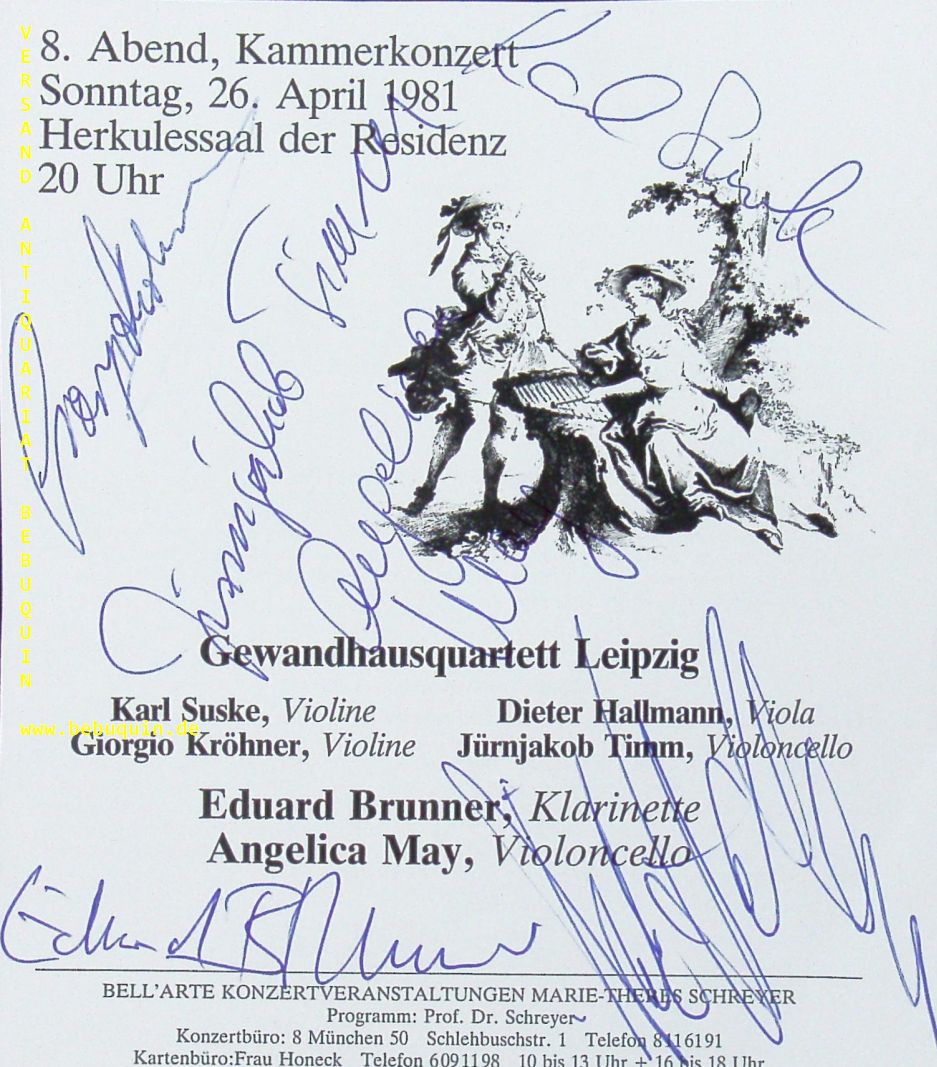 8. Abend, Kammerkonzert
Sonntag, 26. April 1981
Herkulessaal der Residenz
20 Uhr
VERSAND ANTIQUARIAT BEBUQUIN
www.bebuquin.de
Karl Suske
Giorgio Kröhner
Jürnjakob Timm
Angelica May
Gewandhausquartett Leipzig
Karl Suske, Violine Dieter Hallmann, Viola
Giorgio Kröhner, Violine Jürnjakob Timm, Violoncello
Eduard Brunner, Klarinette
Angelica May, Violoncello
Eduard Brunner
BELL'ARTE KONZERTVERANSTALTUNGEN MARIE-THERES SCHREYER
Programm: Prof. Dr. Schreyer
Konzertbüro: 8 München 50 Schlehbuschstr. 1 Telefon 8116191
Kartenbüro:Frau Honeck Telefon 6091198 10 bis 13 Uhr + 16 bis 18 Uhr